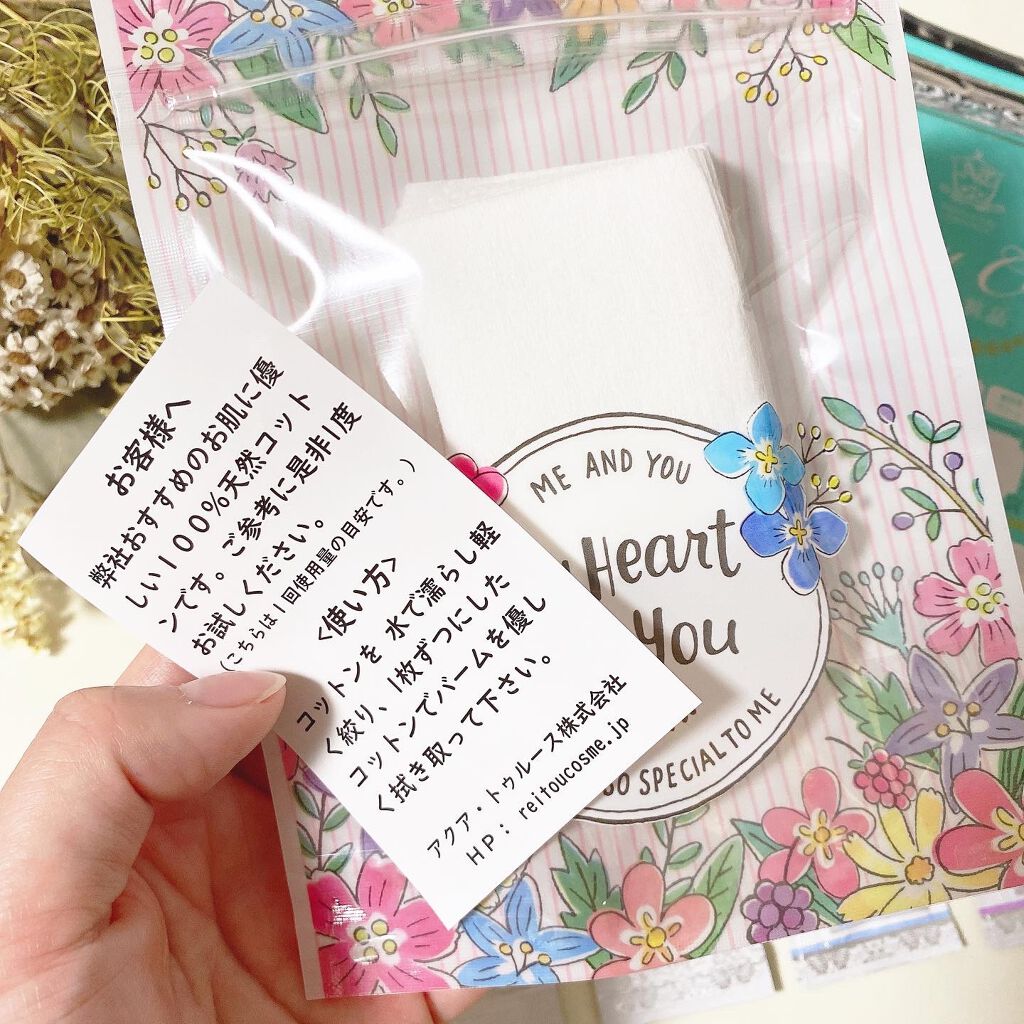 お客様へ
弊社おすすめのお肌に優
しい100%天然コット
ンです。ご参考に是非1度
お試しください。
(こちらは1回使用量の目安です。)
<使い方>
コットンを 水で濡らし軽
く絞り、1枚ずつにした
コットンでバームを優し
く拭き取って下さい。
アクア・トゥルース株式会社
HP: reitoucosme.jp
ME AND YOU
Heart
You
SO SPECIAL TO ME